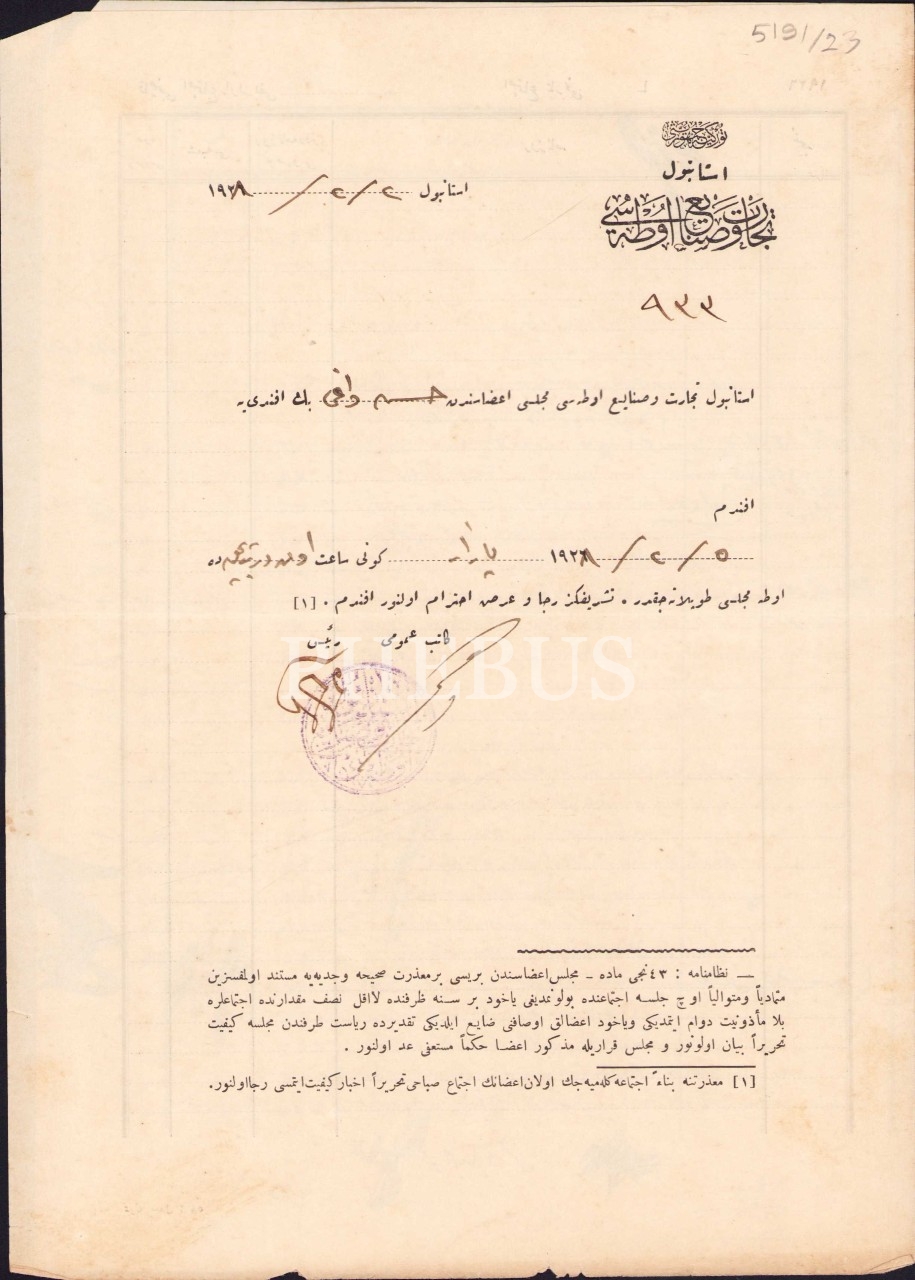 5191/23
توركيه جمهوريتى
استانبول
تجارت وصنايع اوطه سى
استانبول ٢/٢/١٩٢٨
٩٣٣
استانبول تجارت و صنايع اوطه سى مجلسى اعضاسندن حسن بك افندى يه
افندم
٥/٢/١٩٢٨ پازار كونى ساعت ده
اوطه مجلسى طوپلانه جقدر. تشريفكز رجا و عرض احترام اولنور افندم. [١]
كاتب عمومى رئيس
PHEBUS
— نظامنامه : ٤٣ نجى ماده - مجلس اعضاسندن بريسى بر معذرت صحيحه و جديه يه مستند اولمقسزين
متمادياً و متوالياً اوچ جلسه اجتماعنده بولونمديغى ياخود بر سنه ظرفنده لااقل نصف مقدارنده اجتماعلره
بلا مأذونيت دوام ايتمديكى وياخود اعضالق اوصافنى ضايع ايلديكى تقديرده رياست طرفندن مجلسه كيفيت
تحريراً بيان اولونور و مجلس قراريله مذكور اعضا حكماً مستعفى عد اولنور .
[١] معذرتنه بناءً اجتماعه كله ميه جك اولان اعضانك اجتماع صباحى تحريراً اخبار كيفيت ايتمسى رجا اولنور.